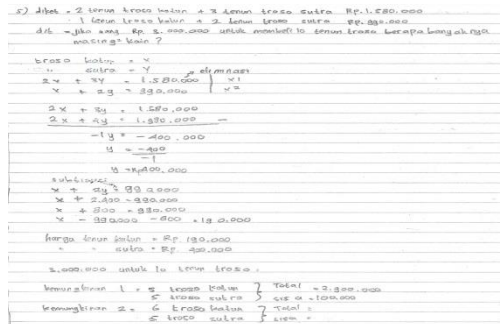 5) diket = 2 tenun troso katun + 3 tenun troso sutra Rp. 1.580.000
1 tenun troso katun + 2 tenun troso sutra Rp. 990.000
dit = jika uang Rp. 3.000.000 untuk membeli 10 tenun troso berapa banyaknya
masing² kain ?
troso katun = x
" sutra = y
eliminasi
2x + 3y = 1.580.000 | x1
x + 2y = 990.000 | x2
2x + 3y = 1.580.000
2x + 4y = 1.980.000 -
-1y = -400.000
y = -400
-1
y = Rp 400.000
x + 2y = 990.000
x + 2.400 = 990.000
x + 800 = 990.000
x = 990.000 - 800 = 190.000
harga tenun katun = Rp 190.000
" " sutra = Rp 400.000
3.000.000 untuk 10 tenun troso.
kemungkinan 1 = 5 troso katun } Total = 2.900.000
5 troso sutra } sisa = 100.000
kemungkinan 2 = 6 troso katun } Total =
5 troso sutra } sisa =